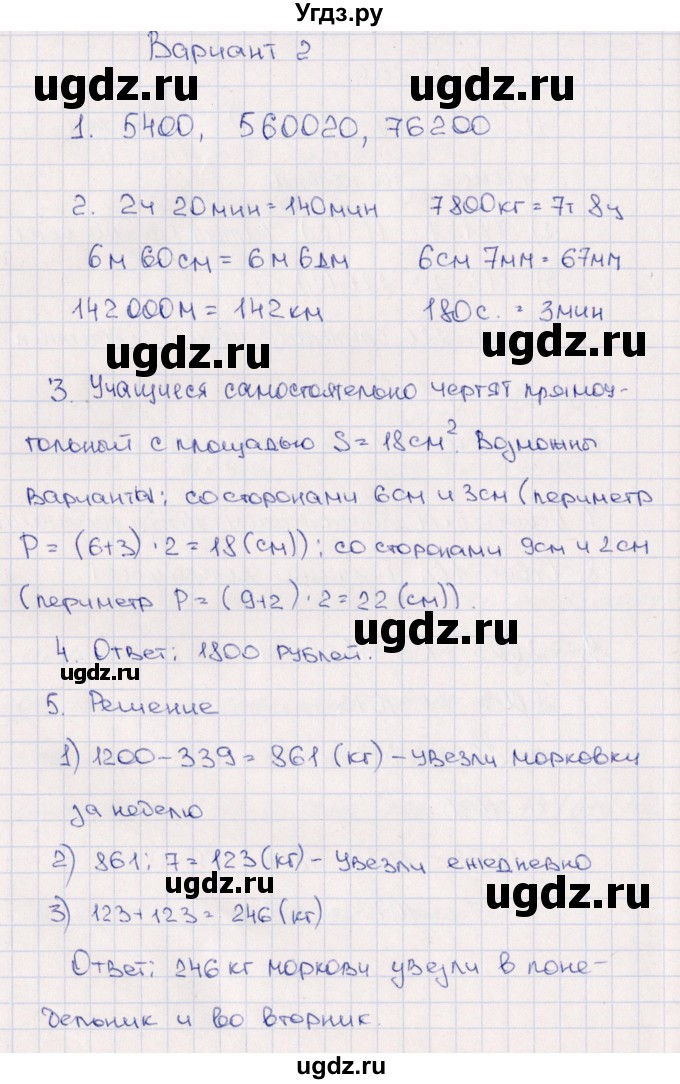 Угдз.ру
Вариант 2
ugdz.ru ugdz.ru
1. 5400, 560020, 76200
2. 2ч 20мин = 140мин 7800кг = 7т 8ц
6м 60см = 6м 6дм 6см 7мм = 67мм
142000м = 142км 180с. = 3мин
ugdz.ru ugdz.ru
3. Учащиеся самостоятельно чертят прямоу-
гольный с площадью S = 18см². Возможны
варианты: со сторонами 6см и 3см (периметр
P = (6+3)·2 = 18 (см)); со сторонами 9см и 2см
(периметр P = (9+2)·2 = 22 (см)).
ugdz.ru
4. Ответ: 1800 рублей.
ugdz.ru
5. Решение
1) 1200 – 339 = 861 (кг) – увезли морковки
за неделю
2) 861 : 7 = 123 (кг) – увезли ежедневно
ugdz.ru ugdz.ru
3) 123 + 123 = 246 (кг)
Ответ: 246 кг моркови увезли в поне-
дельник и во вторник.
ugdz.ru